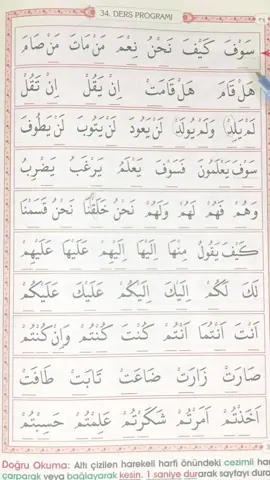 34. DERS PROGRAMI
سَوْفَ كَيْفَ نَحْنُ نِعْمَ مَنْ مَاتَ مَنْ صَامَ
هَلْ قَامَ هَلْ قَامَتْ اِنْ يَقُلْ اِنْ تَقُلْ
لَمْ يَلِدْ وَلَمْ يُولَدْ لَنْ يَعُودَ لَنْ يَتُوبَ لَنْ يَطُوفَ
سَوْفَ يَعْلَمُونَ فَسَوْفَ يَعْلَمُ يَرْغَبُ يَضْرِبُ
وَهُمْ فَهُمْ لَهُمْ وَلَهُمْ نَحْنُ خَلَقْنَا نَحْنُ قَسَمْنَا
كَيْفَ يَقُولُ مِنْهَا اِلَيْهَا اِلَيْهِمْ عَلَيْهَا عَلَيْهِمْ
لَكَ لَكُمْ اِلَيْكَ اِلَيْكُمْ عَلَيْكَ عَلَيْكُمْ
اَنْتَ اَنْتُمَا اَنْتُمْ كُنْتَ كُنْتُمْ وَاِنْ كُنْتُمْ
صَارَتْ زَارَتْ ضَاعَتْ تَابَتْ طَافَتْ
اَخَذْتُمْ اَمَرْتُمْ شَكَرْتُمْ عَلِمْتُمْ حَسِبْتُمْ
Doğru Okuma: Altı çizilen harekeli harfi önündeki cezimli
çarparak veya bağlayarak kesin. 1 saniye durarak sayfayı